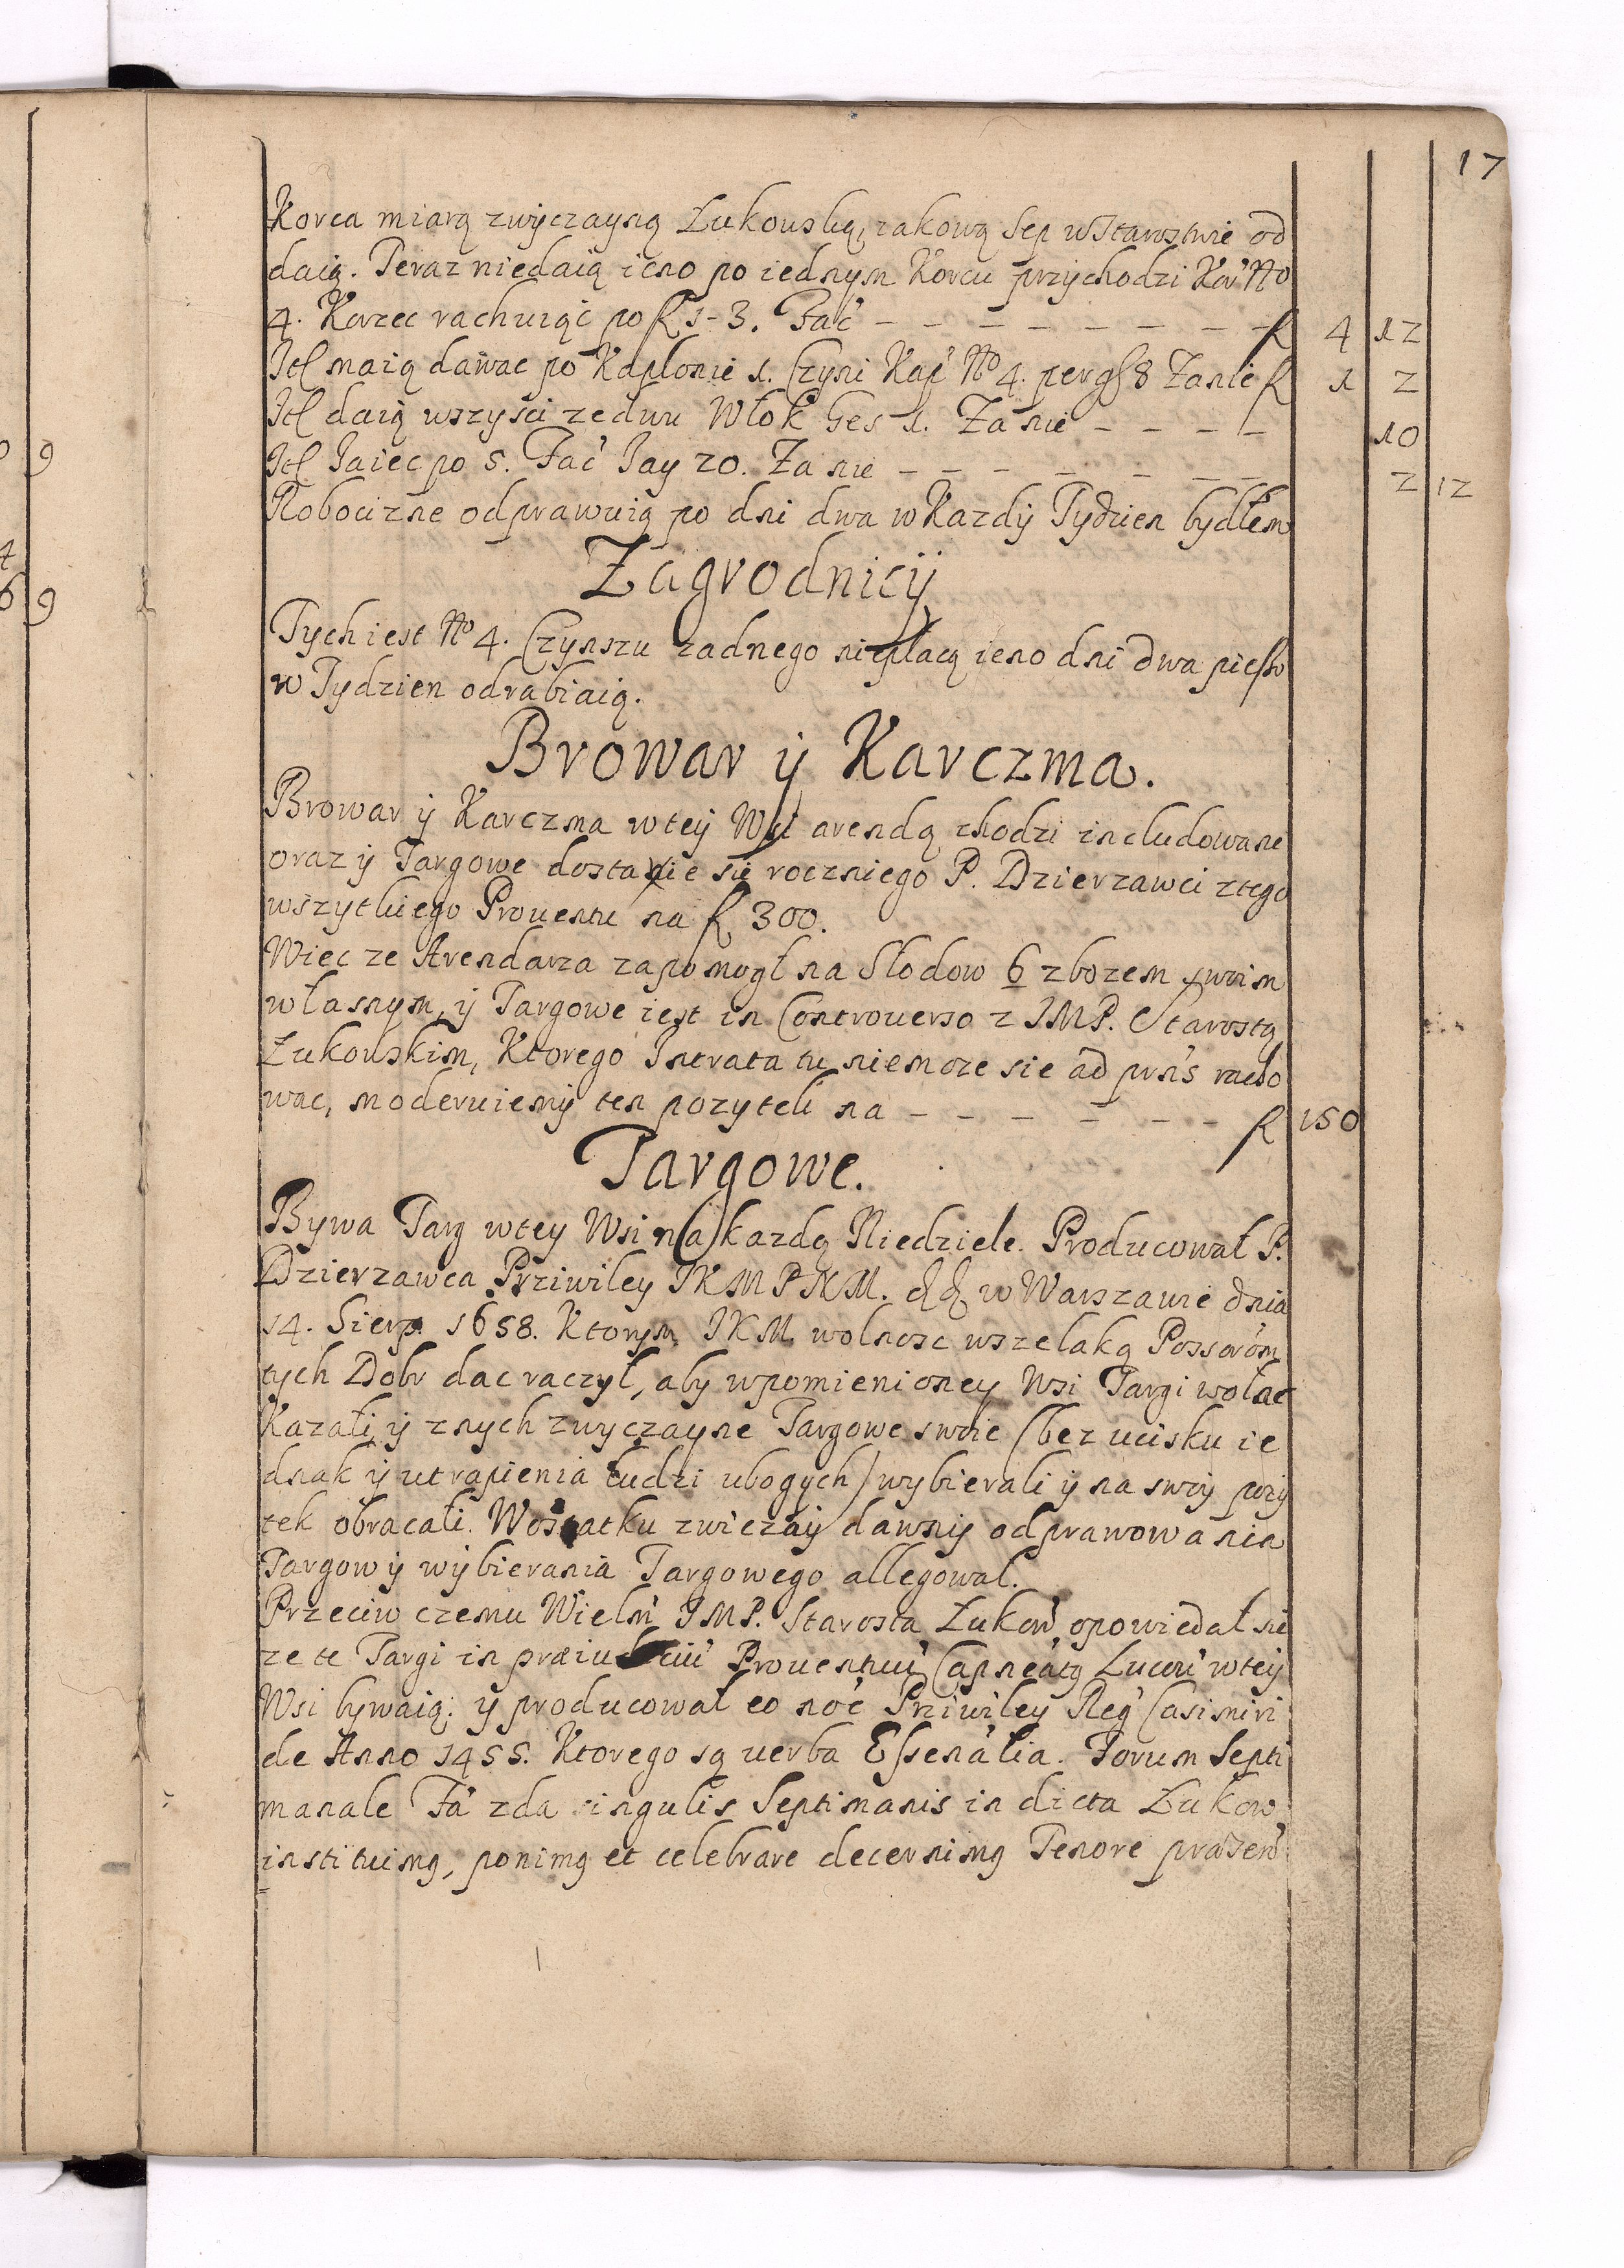 17
Korca miarą zwyczayną Łukouską, rakową Sep w Starostwie od
daią. Teraz niedaią ieno po iednym Korcu przychodzi Kor No
4. Korzec rachuiąc po fl 1-3. Fać - - - - - - - - fl 4 12
Itl maią dawac po Kapłonie 1. Czyni Kap No 4. per gs 8 Zanie fl 1 2
Itl daią wszysci ze dwu Włok Ges 1. Za nie - - - - 10
Itl Iaiec po 5. Fać Iay 20. Za nie - - - - - - - 2 12
Robocizne odprawuią po dni dwa w Kazdy Tydzien bydłem
Zagrodnicy
Tych iest No 4. Czynszu zadnego niepłacą ieno dni dwa pieszo
w Tydzien odrabiaią.
Browar ÿ Karczma.
Browar ÿ Karczma wteÿ Wsi arendą chodzi includowane
oraz ÿ Targowe dostanie się roczniego P. Dzierzawci ztego
wszytkiego Prouentu na fl 300.
Wiec ze Arendarza zapomogł na Słodow 6 zbozem swoim
własnym, ÿ Targowe iest in Controuerso z IMP. Starostą
Łukouskim, Ktorego Intrata tu niemoze sie ad prńs racho
wac, moderuiemÿ ten pozytek na - - - - - - fl 150
Targowe.
Bywa Targ wtey Wsi na kazdą Niedziele. Producował P.
Dzierzawca Prziwiley IKMPNM. w Warszawie dnia
14. Sierp. 1658. Ktorym IKM wolnosc wszelaką Possorom
tych Dobr dac raczył, aby wpomienioney Wsi Targi wołac
Kazali, ÿ znych zwyczayne Targowe swoie (bez ucisku ie
dnak ÿ utrapienia ludzi ubogych) wybierali ÿ na swoy pozy
tek obracali. Wostatku zwiczaÿ dawnÿ odprawowania
Targow ÿ wÿbierania Targowego allegował.
Przeciw czemu Wielm IMP. Starosta Łukow opowiedał się
ze te Targi in præiudiciu Prouentuu Capneatg Lucou wteÿ
Wsi bywaią: ÿ producował eo noe Prziwiley Reg Casimiri
de Anno 1455. Ktorego są uerba Essenalia. Forum Septi
manale Fa zda singulis Septimanis in dicta Łukow
instituimg, ponimg et celebrare decernimg Tenore prasen
0 9
4
6 9